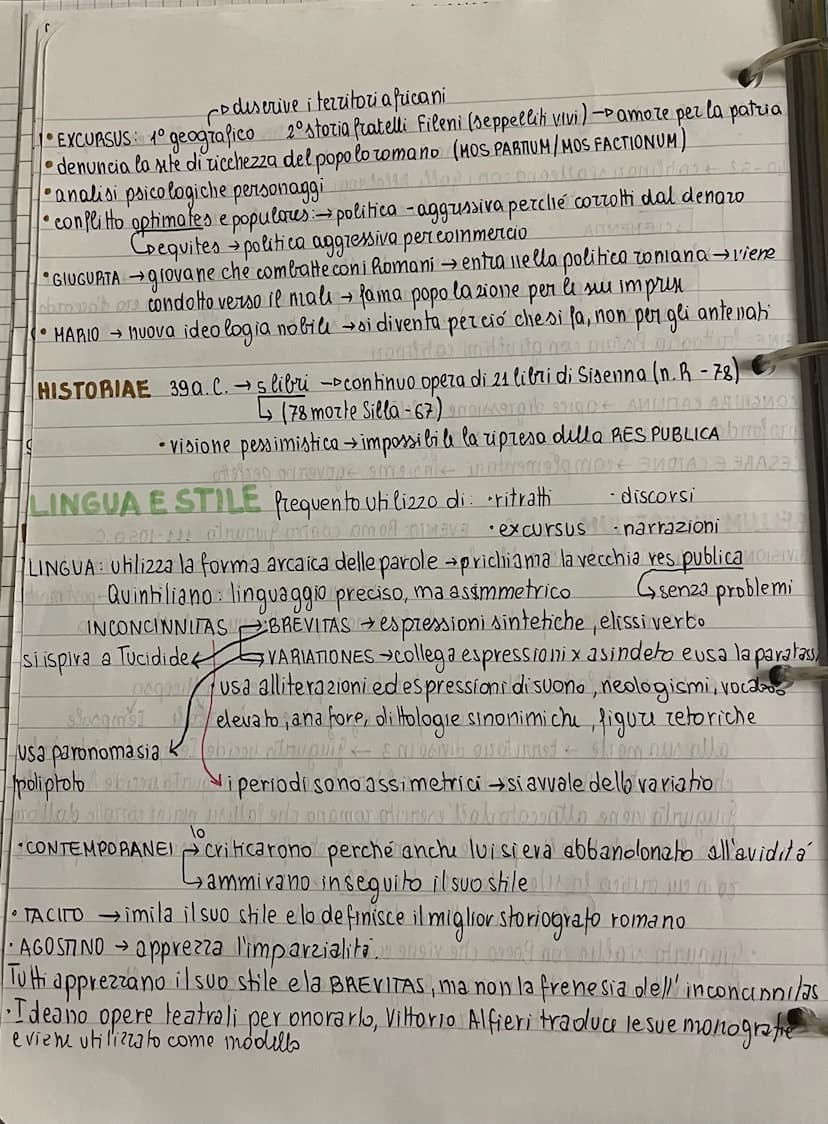 → descrive i territori africani
• EXCURSUS: 1° geografico 2° storia fratelli Fileni (seppelliti vivi) → amore per la patria
• denuncia la sete di ricchezza del popolo romano (MOS PARTIUM/MOS FACTIONUM)
• analisi psicologiche personaggi
• conflitto optimates e populares: → politica - aggressiva perché corrotti dal denaro
↳ equites → politica aggressiva per commercio
• GIUGURTA → giovane che combatte con i Romani → entra nella politica romana → viene
condotto verso il male → fama popolazione per le sue imprese
• MARIO → nuova ideologia nobile → si diventa per ció che si fa, non per gli antenati
HISTORIAE 39 a.C. → 5 libri → continuo opera di 21 libri di Sisenna (n.R - 78)
↳ (78 morte Silla - 67)
• visione pessimistica → impossibile la ripresa della RES PUBLICA
LINGUA E STILE frequento utilizzo di: • ritratti • discorsi
• excursus • narrazioni
LINGUA: utilizza la forma arcaica delle parole → prichiama la vecchia res publica
Quintiliano: linguaggio preciso, ma asimmetrico ↳ senza problemi
INCONCINNITAS → BREVITAS → espressioni sintetiche, elissi verbo
si ispira a Tucidide ← ↳ VARIATIONES → collega espressioni x asindeto e usa la paratassi
usa alliterazioni ed espressioni di suono, neologismi,
elevato, anafore, dittologie sinonimiche, figure retoriche
usa paronomasia
poliptoto → i periodi sono assimetrici → si avvale dello variatio
• CONTEMPORANEI → lo criticarono perché anche lui si era abbandonato all'avidità
↳ ammirano in seguito il suo stile
• TACITO → imila il suo stile e lo definisce il miglior storiografo romano
• AGOSTINO → apprezza l'imparzialitá.
Tutti apprezzano il suo stile e la BREVITAS, ma non la frenesia dell' inconcinnitas
• Ideano opere teatrali per onorarlo, Vittorio Alfieri traduce le sue monografie
e viene utilizzato come modello